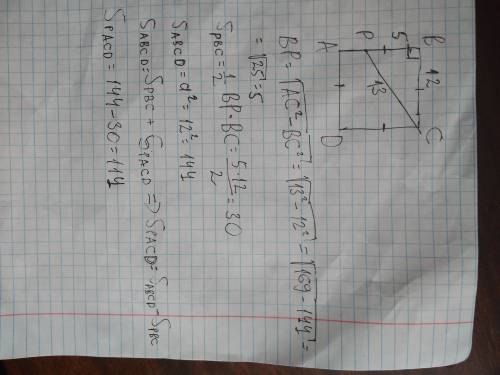 A P 5 B
13 12
D C
BP = √AC² - BC² = √13² - 12² = √169 - 144 =
= √25 = 5
S_PBC = 1/2 BP · BC = 5 · 12/2 = 30
S_ABCD = a² = 12² = 144
S_ABCD = S_PBC + S_PACD => S_PACD = S_ABCD - S_PBC
S_PACD = 144 - 30 = 114